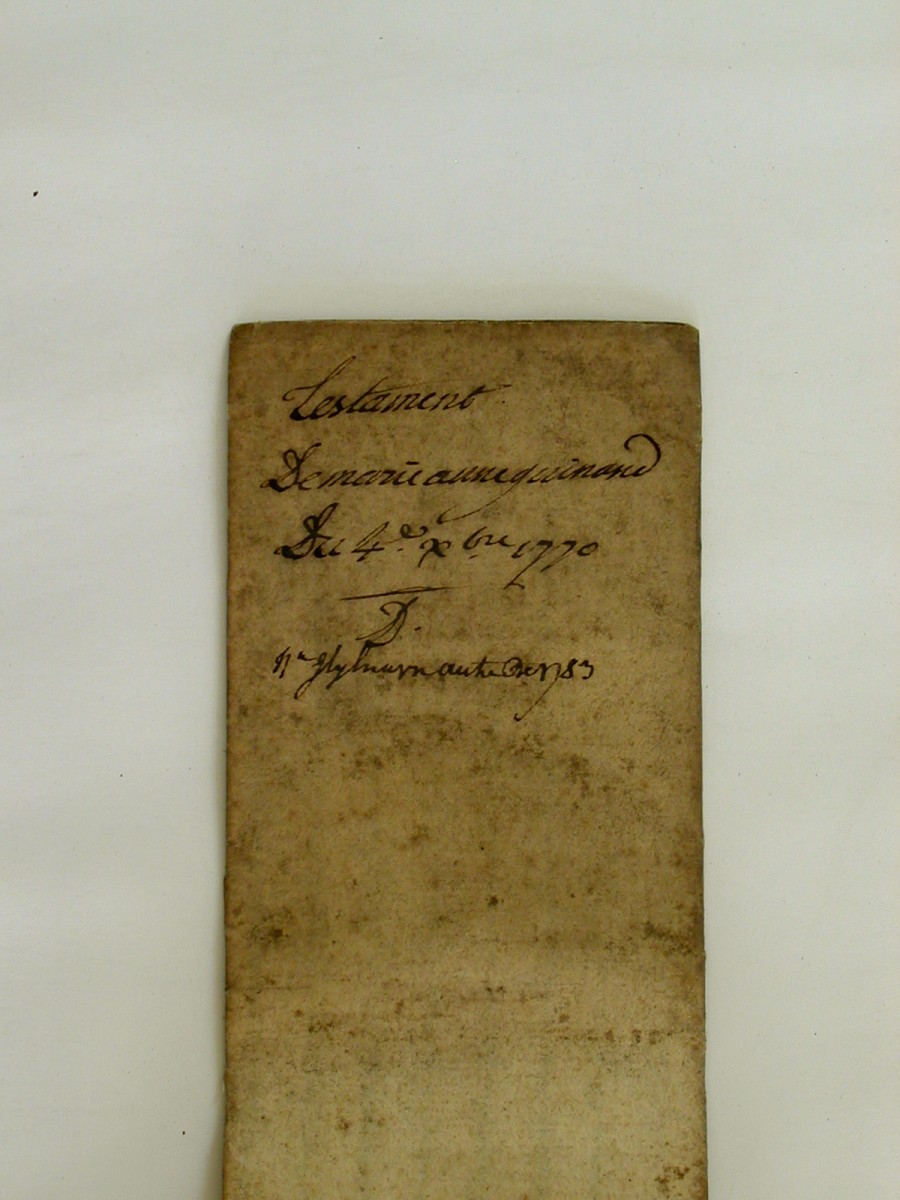 Testament
De marie anne guinand
Du 4.e xbre 1770
D.
1783